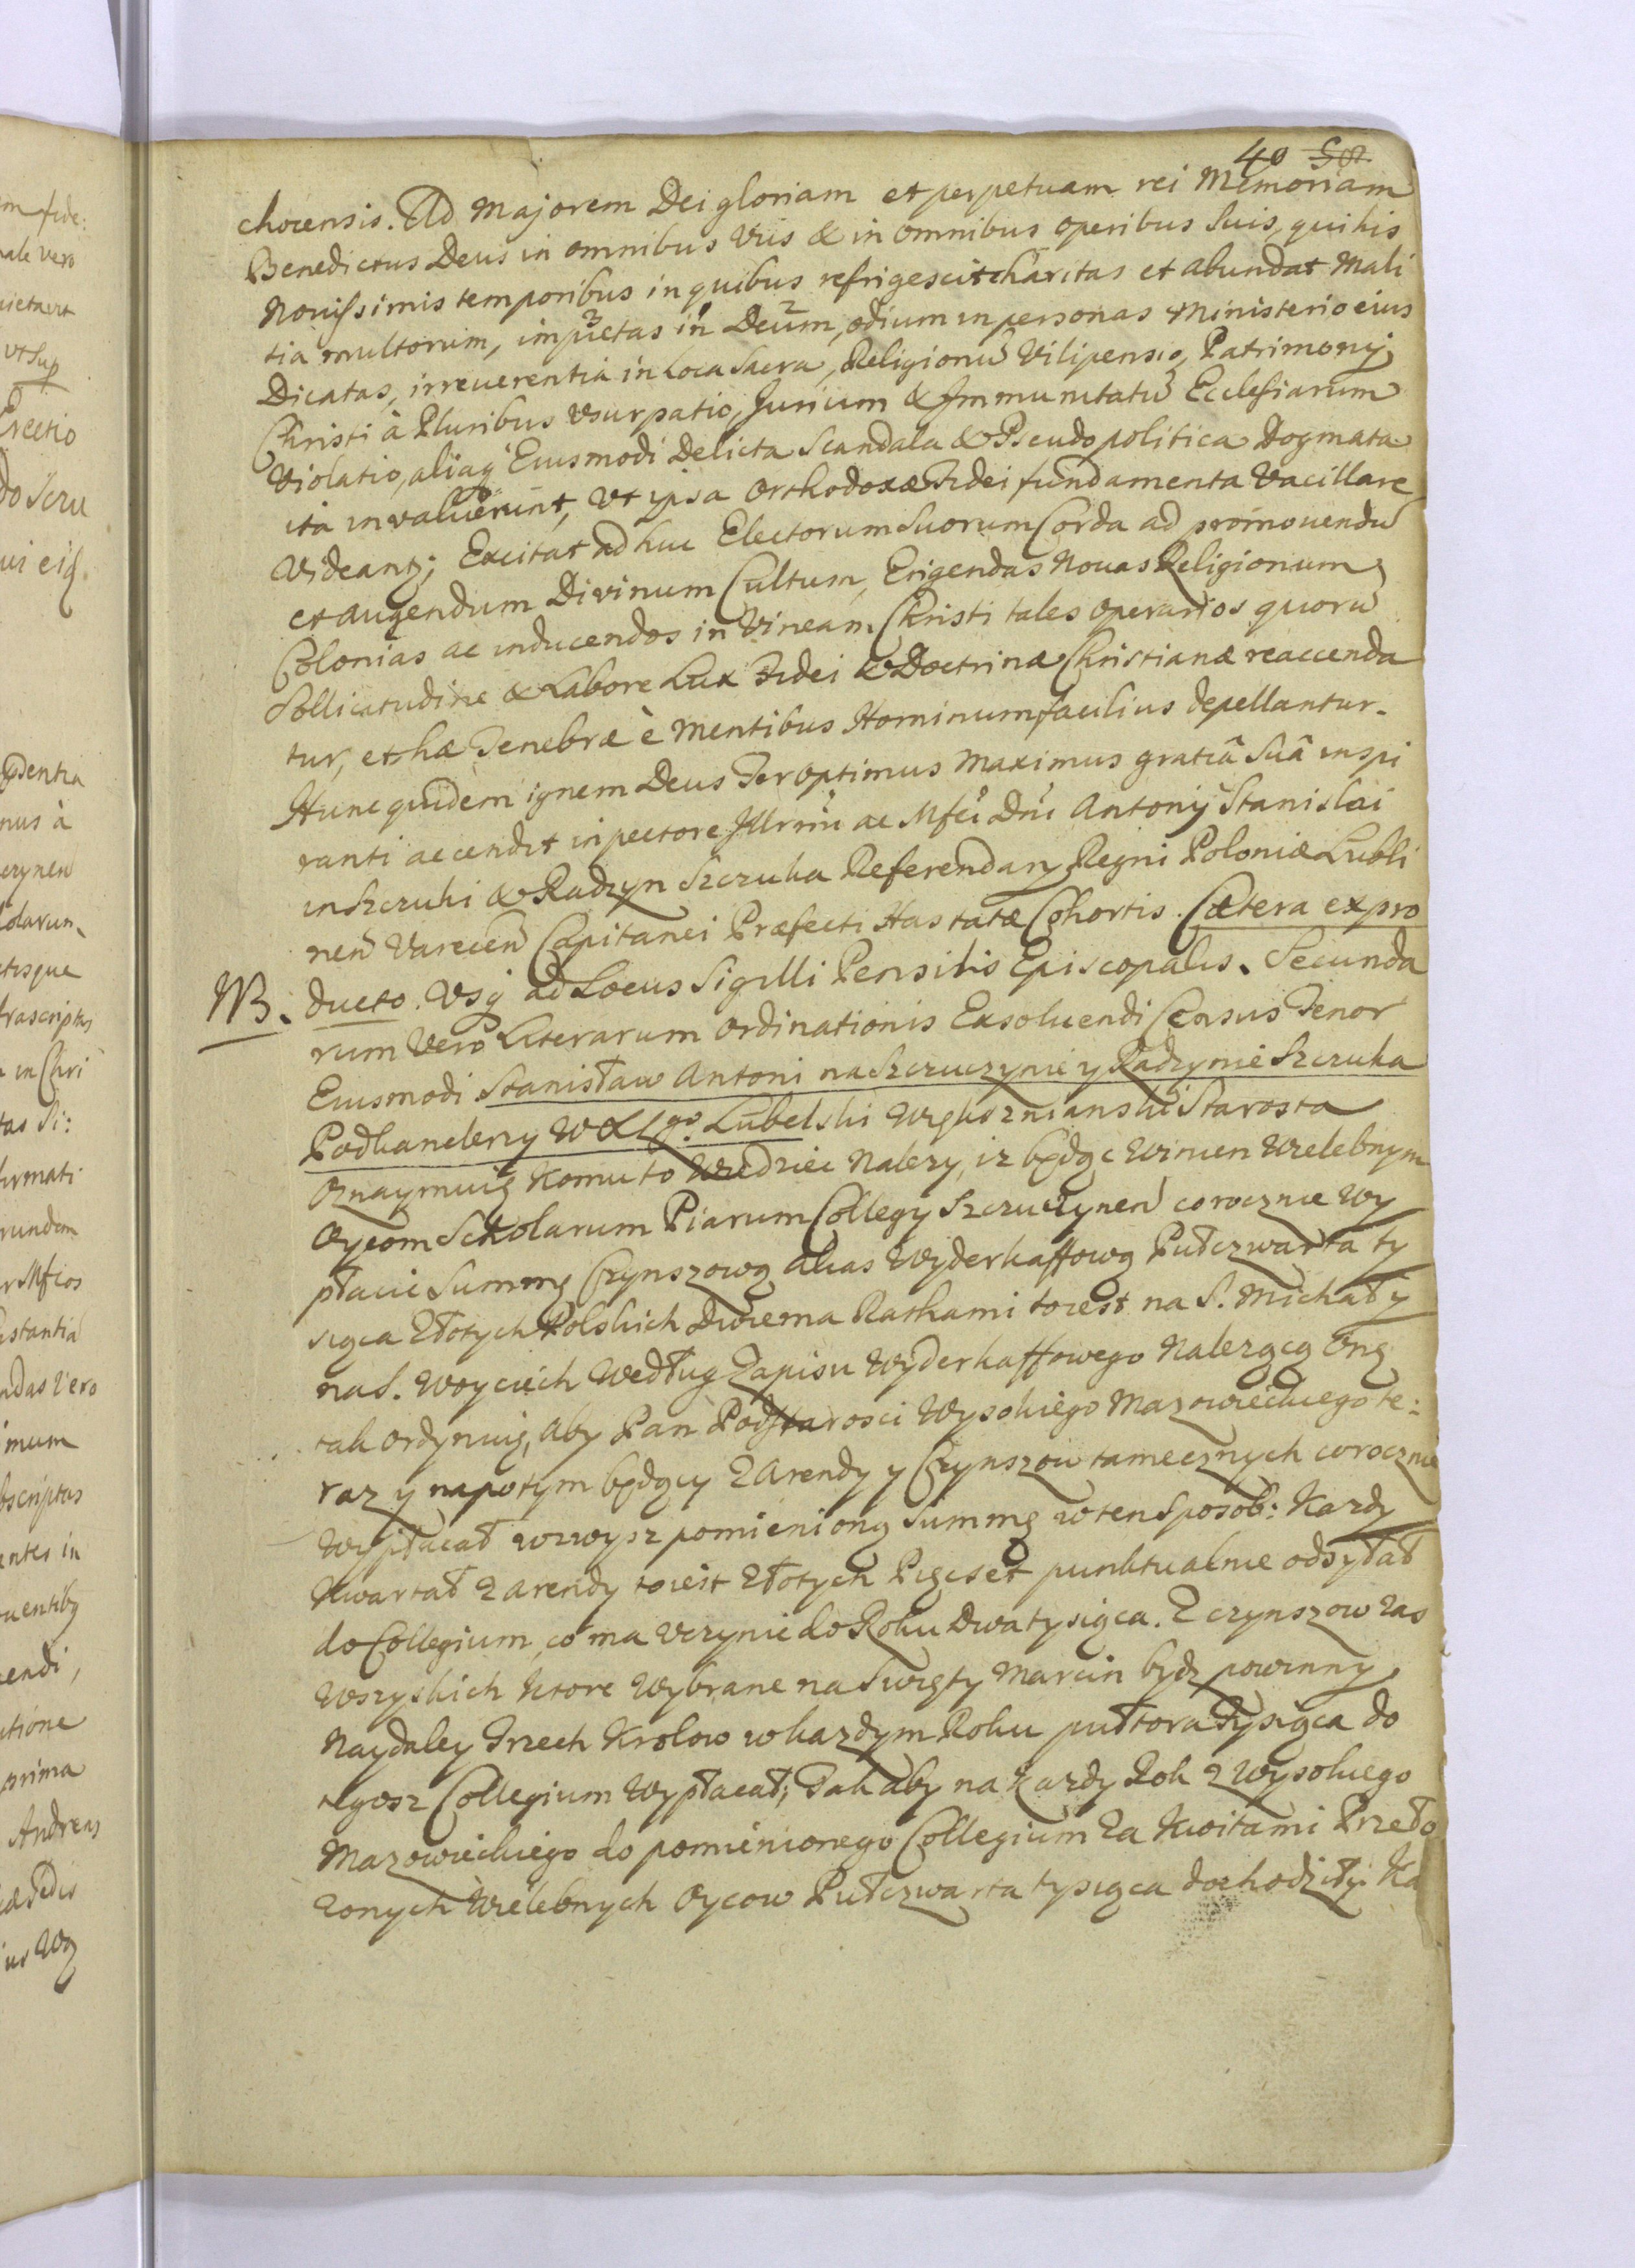 40 502
chovensis. Ad Majorem Dei gloriam et perpetuam rei Memoriam
Benedictus Deus in omnibus Viis & in omnibus operibus Suis, qui his
Novissimis temporibus in quibus refrigescit charitas et abundat Mali
tia multorum, impietas in Deum, odium in personas Ministerio eius
Dicatas, irreuerentia in Loca Sacra, Religionũ Vilipensio, Patrimonij
Christi à Pluribus Vsurpatio, Jurium & Immunitatũ Ecclesiarum
Violatio, aliaq Eiusmodi Delicta Scandala & Pseudopolitica Dogmata
ita invaluerunt, Vt ipsa Orthodoxæ Fidei fundamenta Vacillare
Videantɋ; Excitat adhuc Electorum Suorum Corda ad promouendũ
et augendum Divinum Cultum, Erigendas Nouas Religionum
Colonias ac inducendos in Vineam Christi tales operarios quorũ
Sollicitudine & Labore Lux Fidei & Doctrinæ Christianæ reaccenda
tur, et hæ Tenebræ è Mentibus Hominum facilius depellantur.
Hunc quidem ignem Deus Ter optimus Maximus gratiâ Suâ inspi
ranti accendit in pectore Illrmi ac Mfci Dni Antonij Stanislai
in Szczuki & Radzyn Szczuka Referendarij Regni Poloniæ Lubli
neñ Vareceñ Capitanei Præfecti Hastatæ Cohortis. Cætera ex pro
NB. ducto. Vsq ad Locus Sigilli Pensilis Episcopalis. Secunda
rum Vero Literarum Ordinationis Exsoluendi Census Tenor
Eiusmodi Stanisław Antoni na Szczuczynie y Radzynie Szczuka
Podkanclerzy W X Lgo. Lubelski Starosta
Oznaymuię Komu to Wiedziec Nalezy, iz będąc Winien Wielebnym
Oycom Scholarum Piarum Collegij Szczuczyneñ corocznie wy
płacic Summę Czynszową alias Wyderkaffową Pułczwarta ty
siąca Złotych Polskich Dwiema Rathami to iest na S. Michał y
na S. Woyciech Według Zapisu Wyderkaffowego Nalezącą Onę
tak ordynuię, aby Pan Podstarosci Wysokiego Mazowieckiego te:
raz y napotym będący z Arendy y Czynszow tamecznych corocznie
Wypłacał wzwysz pomienioną Summę w ten Sposob: Kazdy
Kwartał z arendy to iest Złotych Pięcset punktualnie odsyłał
do Collegium, co ma Vczynic do Roku Dwa tysiąca. Z czynszow zas
Wszyskich Ktore Wybrane na Swięty Marcin bydz powinny
Naydaley Trzech Krolow w kazdym Roku pułtora Tysiąca do
tegosz Collegium Wypłacał; Tak aby na kazdy Rok z Wysokiego
Mazowieckiego do pomienionego Collegium Za Kwitami Przeło
zonych Wielebnych Oycow Pułczwarta tysiąca dochodziły. Ka